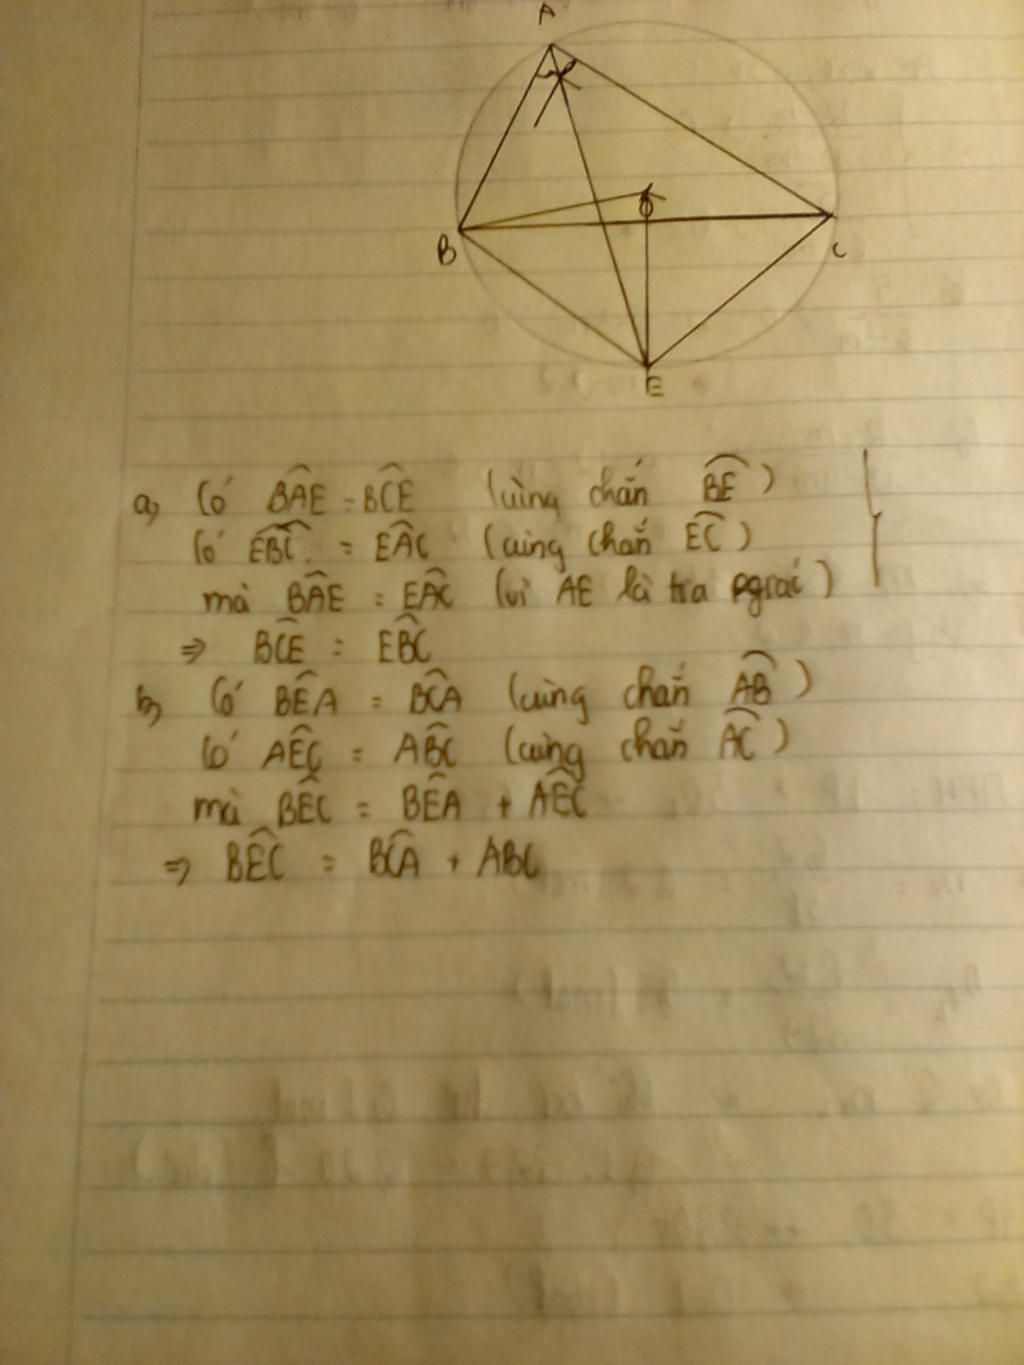 A
O
B
C
E
a, Có BÂE = BĈE (cùng chắn B͡E)
Có EB̂C = EÂC (cùng chắn E͡C)
mà BÂE = EÂC (vì AE là tia pgiác)
⇒ BĈE = EB̂C
b, Có BÊA = BĈA (cùng chắn A͡B)
Có AÊC = AB̂C (cùng chắn A͡C)
mà BÊC = BÊA + AÊC
⇒ BÊC = BĈA + ABC